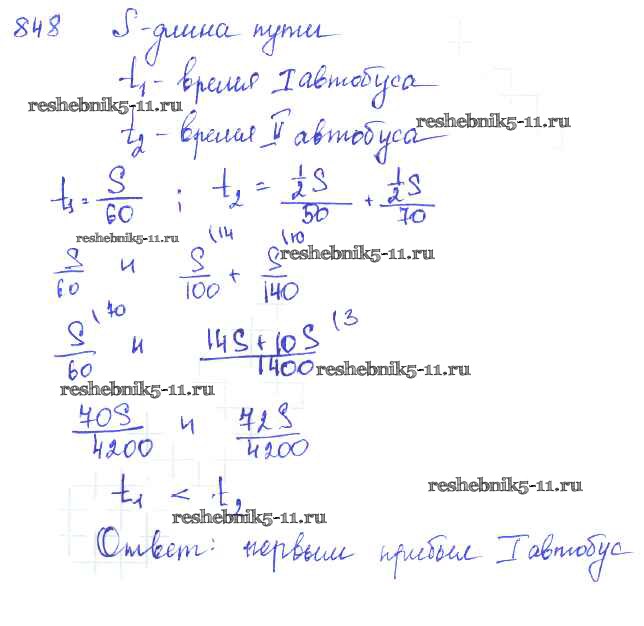 848 S-длина пути
t₁- время I автобуса
reshebnik5-11.ru
reshebnik5-11.ru
t₂ - время II автобуса
t₁ = S/60 ; t₂ = ½S/50 + ½S/70
reshebnik5-11.ru
S/60 и S(14/100 + S(10/140
reshebnik5-11.ru
S(70/60 и 14S+10S(3/1400
reshebnik5-11.ru
reshebnik5-11.ru
70S/4200 и 72S/4200
t₁ < t₂
reshebnik5-11.ru
reshebnik5-11.ru
Ответ: первым прибыл I автобус